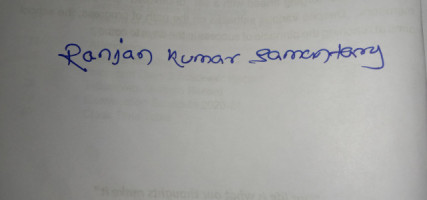 Ranjan Kumar Samantary